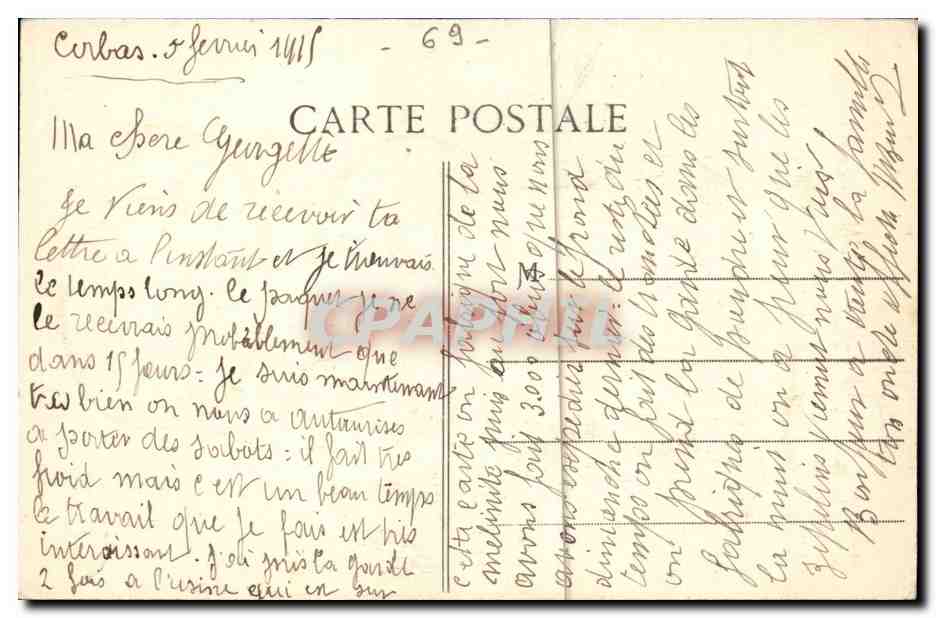 Corbas. 5 fevrier 1915
- 69 -
CARTE POSTALE
Ma chere Georgette
Je viens de recevoir ta
lettre a l'instant et je trouvais
le temps long. le paquet je ne
le recevrais probablement que
dans 15 jours = Je suis maintenant
tres bien on nous a autorises
a porter des sabots = il fait tres
froid mais c'est un beau temps
le travail que je fais est tres
interaissant. J'ai pris la garde
2 fois a l'usine qui est sur
cette carte on fabrique de la
melinite puis au fort nous
avons fait 3.000 obus que nous
avons expedier sur le front
dimanche dernier = le reste du
temps on fait des tranchées et
on prend la garde dans les
fabriques de poudre surtout
la nuit on a peur que les
Zeppelins viennent nous
Bonjour a toute la famille
ton oncle
CPAPHIL